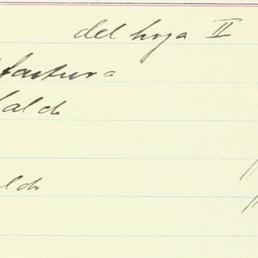 del hoja II
factura
Saldo